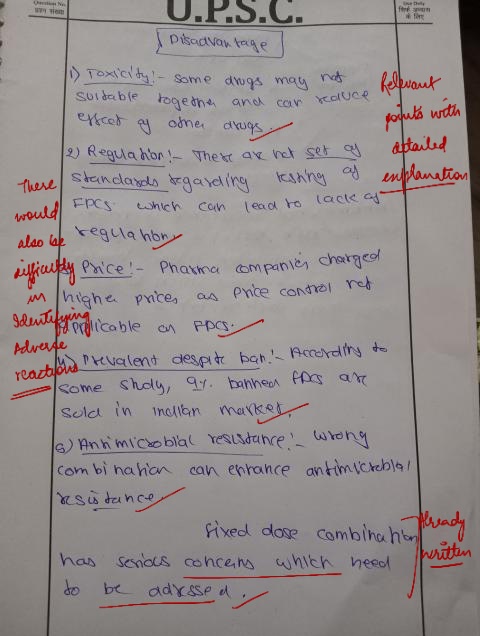 Question No.
प्रश्न संख्या
U.P.S.C.
Use Only
सिर्फ अभ्यास
के लिए
Disadvantage
1) Toxicity:- Some drugs may not
suitable together and can reduce
effect of other drugs.
Relevant
points with
detailed
explanation
2) Regulation:- There are not set of
standards regarding testing of
FPCs which can lead to lack of
regulation.
There
would
also be
difficulty
in
Identifying
Adverse
reactions
Price:- Pharma companies charged
higher prices as price control not
applicable on FDCs.
4) Prevalent despite ban:- According to
some study, 9% banned FDCs are
sold in Indian market.
5) Antimicrobial resistance:- wrong
combination can enhance antimicrobial
resistance
fixed dose combination
has serious concerns which need
to be adrssed.
Already
written